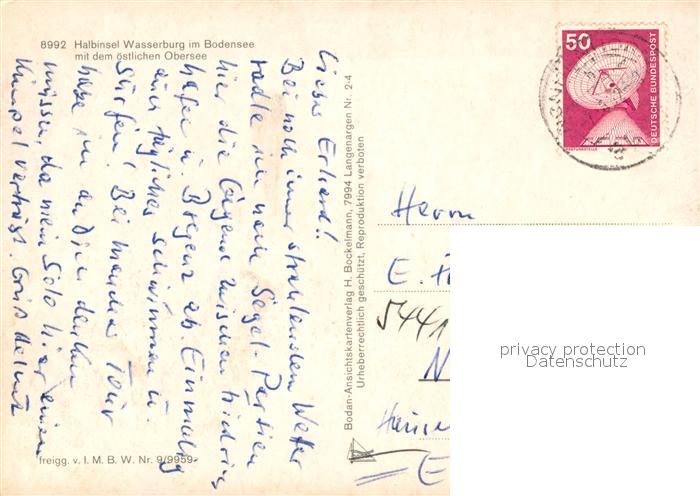 8992 Halbinsel Wasserburg im Bodensee
mit dem östlichen Obersee
Lieber Erhard!!
Bei noch immer strahlendem Wetter
radle ich nein Segel-Partien
hier die Gegend zwischen
hafen u. Bregenz ab Einmalig
auch tägliches schwimmen u.
Surfen! Bei mancher Tour
habe ich an Dich denken
müssen, da mein Solo hier einen
Kumpel verträgt. Gruß Helmut
freigg. v. I. M. B. W. Nr. 9/9959
Bodan-Ansichtskartenverlag H. Bockelmann, 7994 Langenargen Nr. 2-4
Urheberrechtlich geschützt, Reproduktion verboten
50
DEUTSCHE BUNDESPOST
ERDFUNKSTELLE
Herrn
E.
5441
N
E
privacy protection
Datenschutz